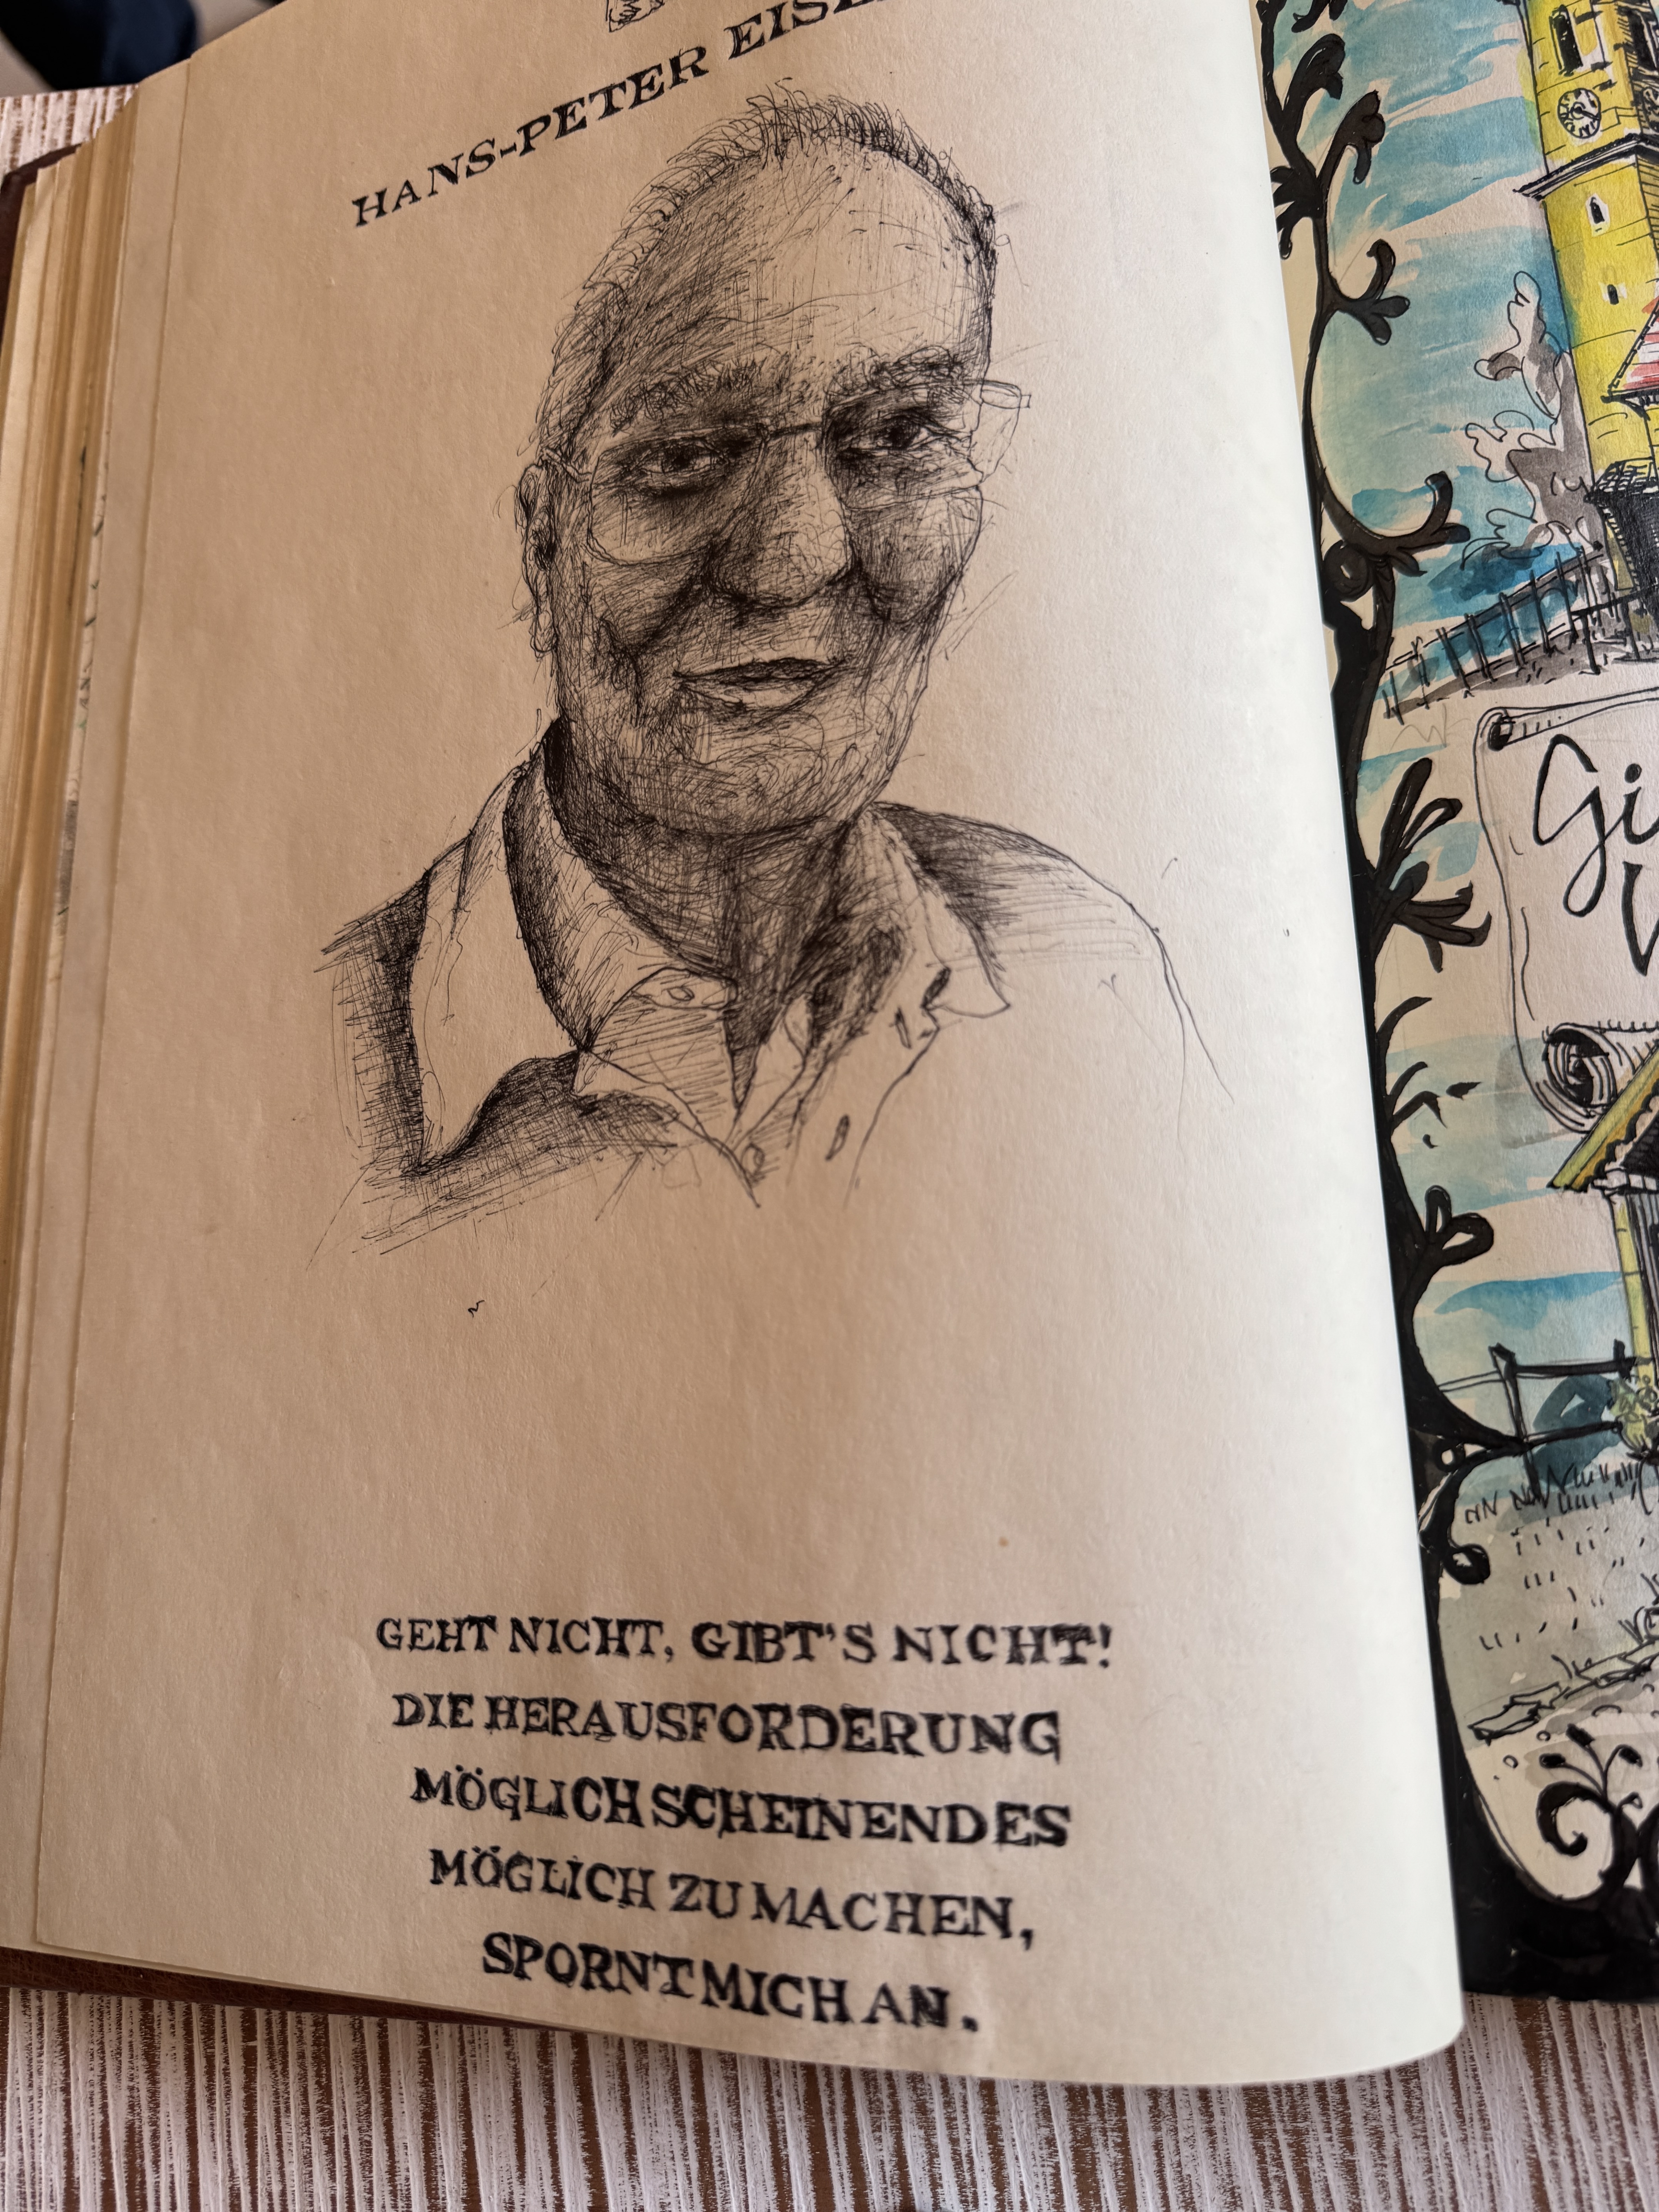 HANS-PETER
GEHT NICHT, GIBT'S NICHT!
DIE HERAUSFORDERUNG
MÖGLICH SCHEINENDES
MÖGLICH ZU MACHEN,
SPORNT MICH AN.